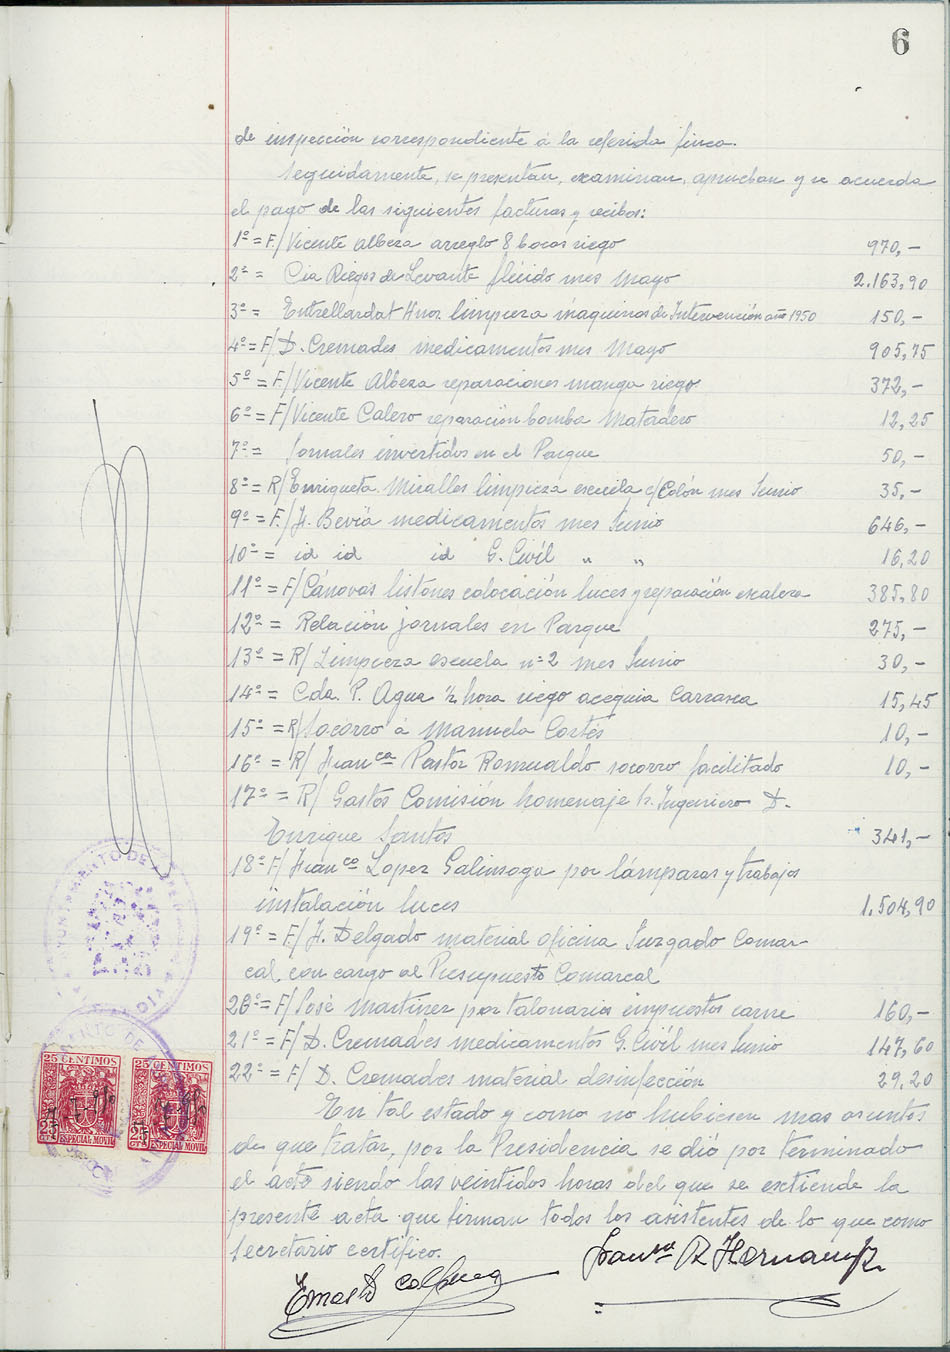 6
de inspección correspondiente á la referida finca.
Seguidamente, se presentan, examinan, aprueban y se acuerda
el pago de las siguientes facturas y recibos:
1º = F/ Vicente Albeza arreglo 8 bocas riego 970,-
2º = Cia Riegos de Levante flúido mes Mayo 2.163,90
3º = Entrellardat Hnos limpieza máquinas de Intervención año 1950 150,-
4º = F/ D. Cremades medicamentos mes Mayo 905,75
5º = F/ Vicente Albeza reparaciones manga riego 372,-
6º = F/ Vicente Calero reparación bomba Matadero 12,25
7º = Jornales invertidos en el Parque 50,-
8º = R/ Enriqueta Miralles limpieza escuela c/ Colón mes Junio 35,-
9º = F/ J. Bevia medicamentos mes Junio 646,-
10º = id id id G. Civil " " 16,20
11º = F/ Cánovas listones colocación luces y reparación escalera 385,80
12º = Relación jornales en Parque 275,-
13º = R/ Limpieza escuela nº 2 mes Junio 30,-
14º = Cda. P. Agua ½ hora riego acequia Carrasca 15,45
15º = R/ Socorro á Manuela Cortés 10,-
16º = R/ Franca Pastor Romualdo socorro facilitado 10,-
17º = R/ Gastos Comisión homenaje Sr. Ingeniero D.
Enrique Santos 341,-
18º F/ Franco Lopez Galinsoga por lámparas y trabajos
instalación luces 1.504,90
19º = F/ J. Delgado material oficina Juzgado Comar-
cal con cargo al Presupuesto Comarcal
20º = F/ José Martinez por talonario impuestos carne 160,-
21º = F/ D. Cremades medicamentos G. Civil mes Junio 147,60
22º = F/ D. Cremades material desinfección 29,20
En tal estado y como no hubiesen mas asuntos
de que tratar, por la Presidencia se dió por terminado
el acto siendo las veintidos horas del que se extiende la
presente acta que firman todos los asistentes de lo que como
Secretario certifico.
AYUNTAMIENTO DE
25 CENTIMOS
25 CENTIMOS
ESPECIAL MOVIL
ESPECIAL MOVIL